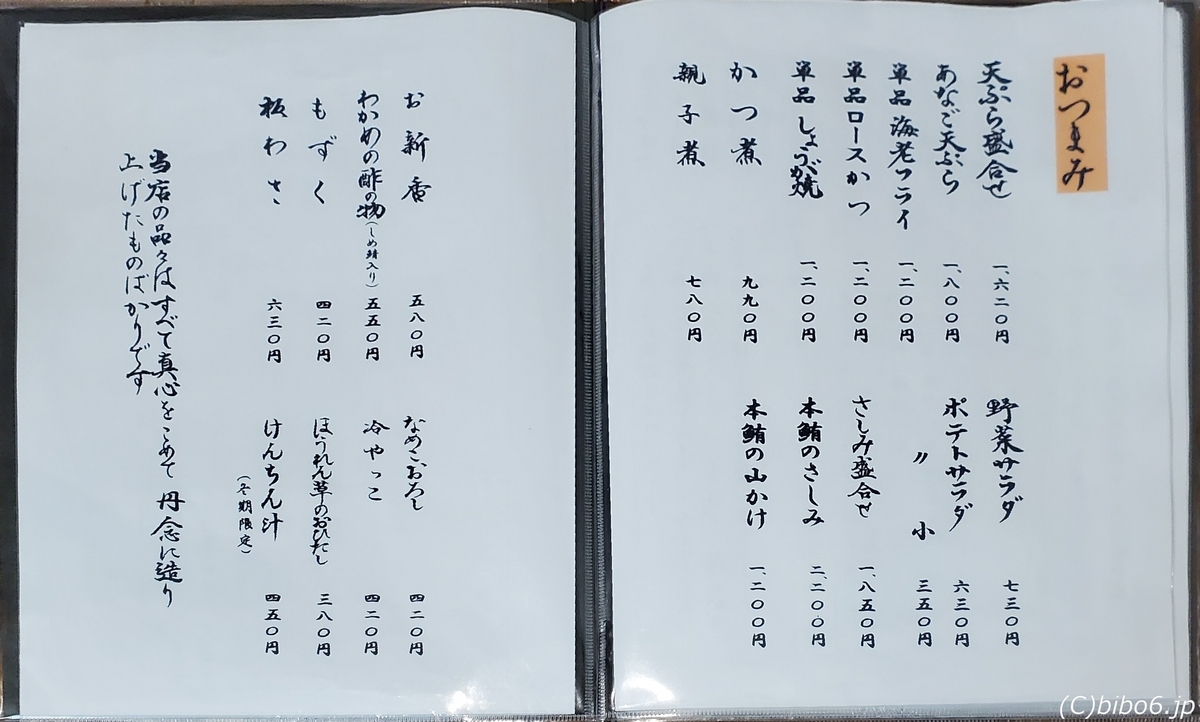 おつまみ
天ぷら盛合せ 一、六二〇円
あなご天ぷら 一、八〇〇円
単品 海老フライ 一、二〇〇円
単品 ロースかつ 一、二〇〇円
単品 しょうが焼 一、二〇〇円
かつ煮 九九〇円
親子煮 七八〇円
野菜サラダ 七三〇円
ポテトサラダ 六三〇円
〃 小 三五〇円
さしみ盛合せ 一、八五〇円
本鮪のさしみ 二、二〇〇円
本鮪の山かけ 一、二〇〇円
お新香 五八〇円
わかめの酢の物(しめ鯖入り) 五五〇円
もずく 四二〇円
板わさ 六三〇円
なめこおろし 四二〇円
冷やっこ 四二〇円
ほうれん草のおひたし 三八〇円
けんちん汁 四五〇円
(冬期限定)
当店の品々はすべて真心をこめて 丹念に造り
上げたものばかりです
(C)bibo6.jp